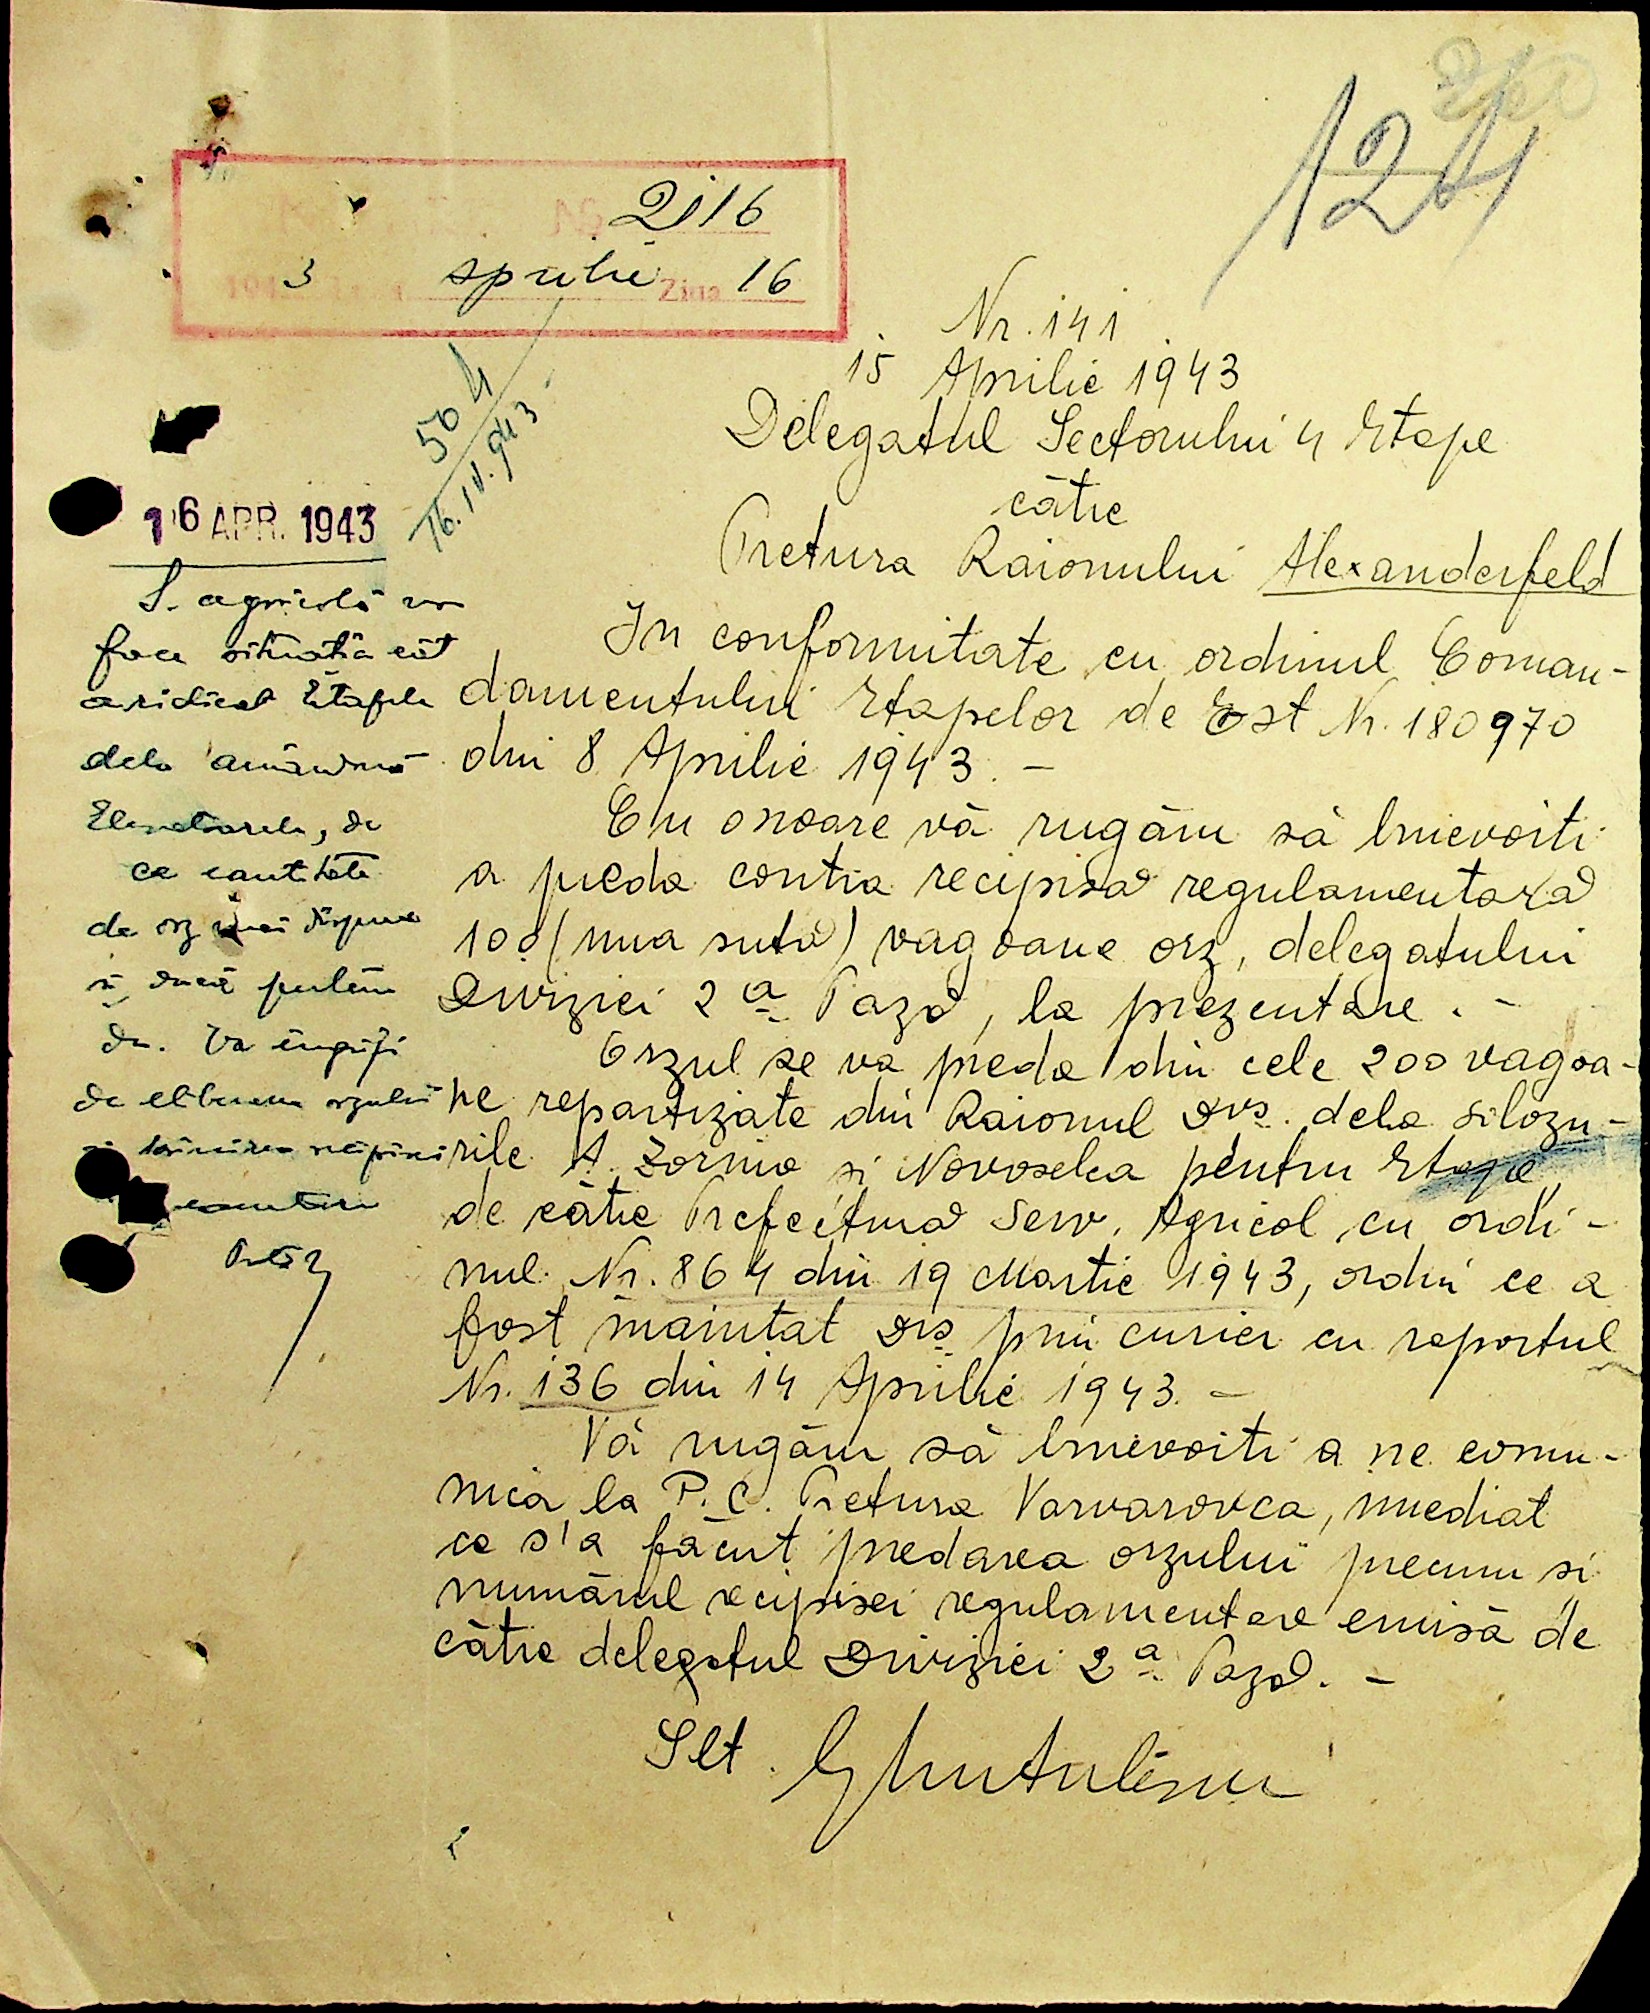 124
2116
1943 Aprilie Ziua 16
504
16.IV.943
Nr. 141
15 Aprilie 1943
Delegatul Sectorului 4 Etape
către
Pretura Raionului Alexanderfeld
16 APR. 1943
S. agricolă va
face situatia cât
a ridicat Etapele
dela amândouă
Elevatoarele, de
ce cantitate
de orz mai dispune
si dacă putem
da. Va îngriji
de eliberarea orzului
In conformitate cu ordinul Coman-
damentului Etapelor de Est Nr. 180970
din 8 Aprilie 1943. -
Cu onoare vă rugăm să binevoiti
a preda contra recipisă regulamentară
100 (una sută) vagoane orz, delegatului
Diviziei 2a Pază, la prezentare. -
Orzul se va preda din cele 200 vagoa-
ne repartizate din Raionul Dvs. dela silozu-
rile A. Zornia si Novoselca pentru Etape,
de către Prefectură Serv. Agricol cu ordi-
nul Nr. 864 din 19 Martie 1943, ordin ce a
fost înaintat Dvs prin curier cu raportul
Nr. 136 din 14 Aprilie 1943. -
Vă rugăm să binevoiti a ne comu-
nica la P.C. Pretura Varvarovca, imediat
ce s'a făcut predarea orzului precum si
numărul recipisei regulamentare emisă de
către delegatul Diviziei 2a Pază. -
Slt.